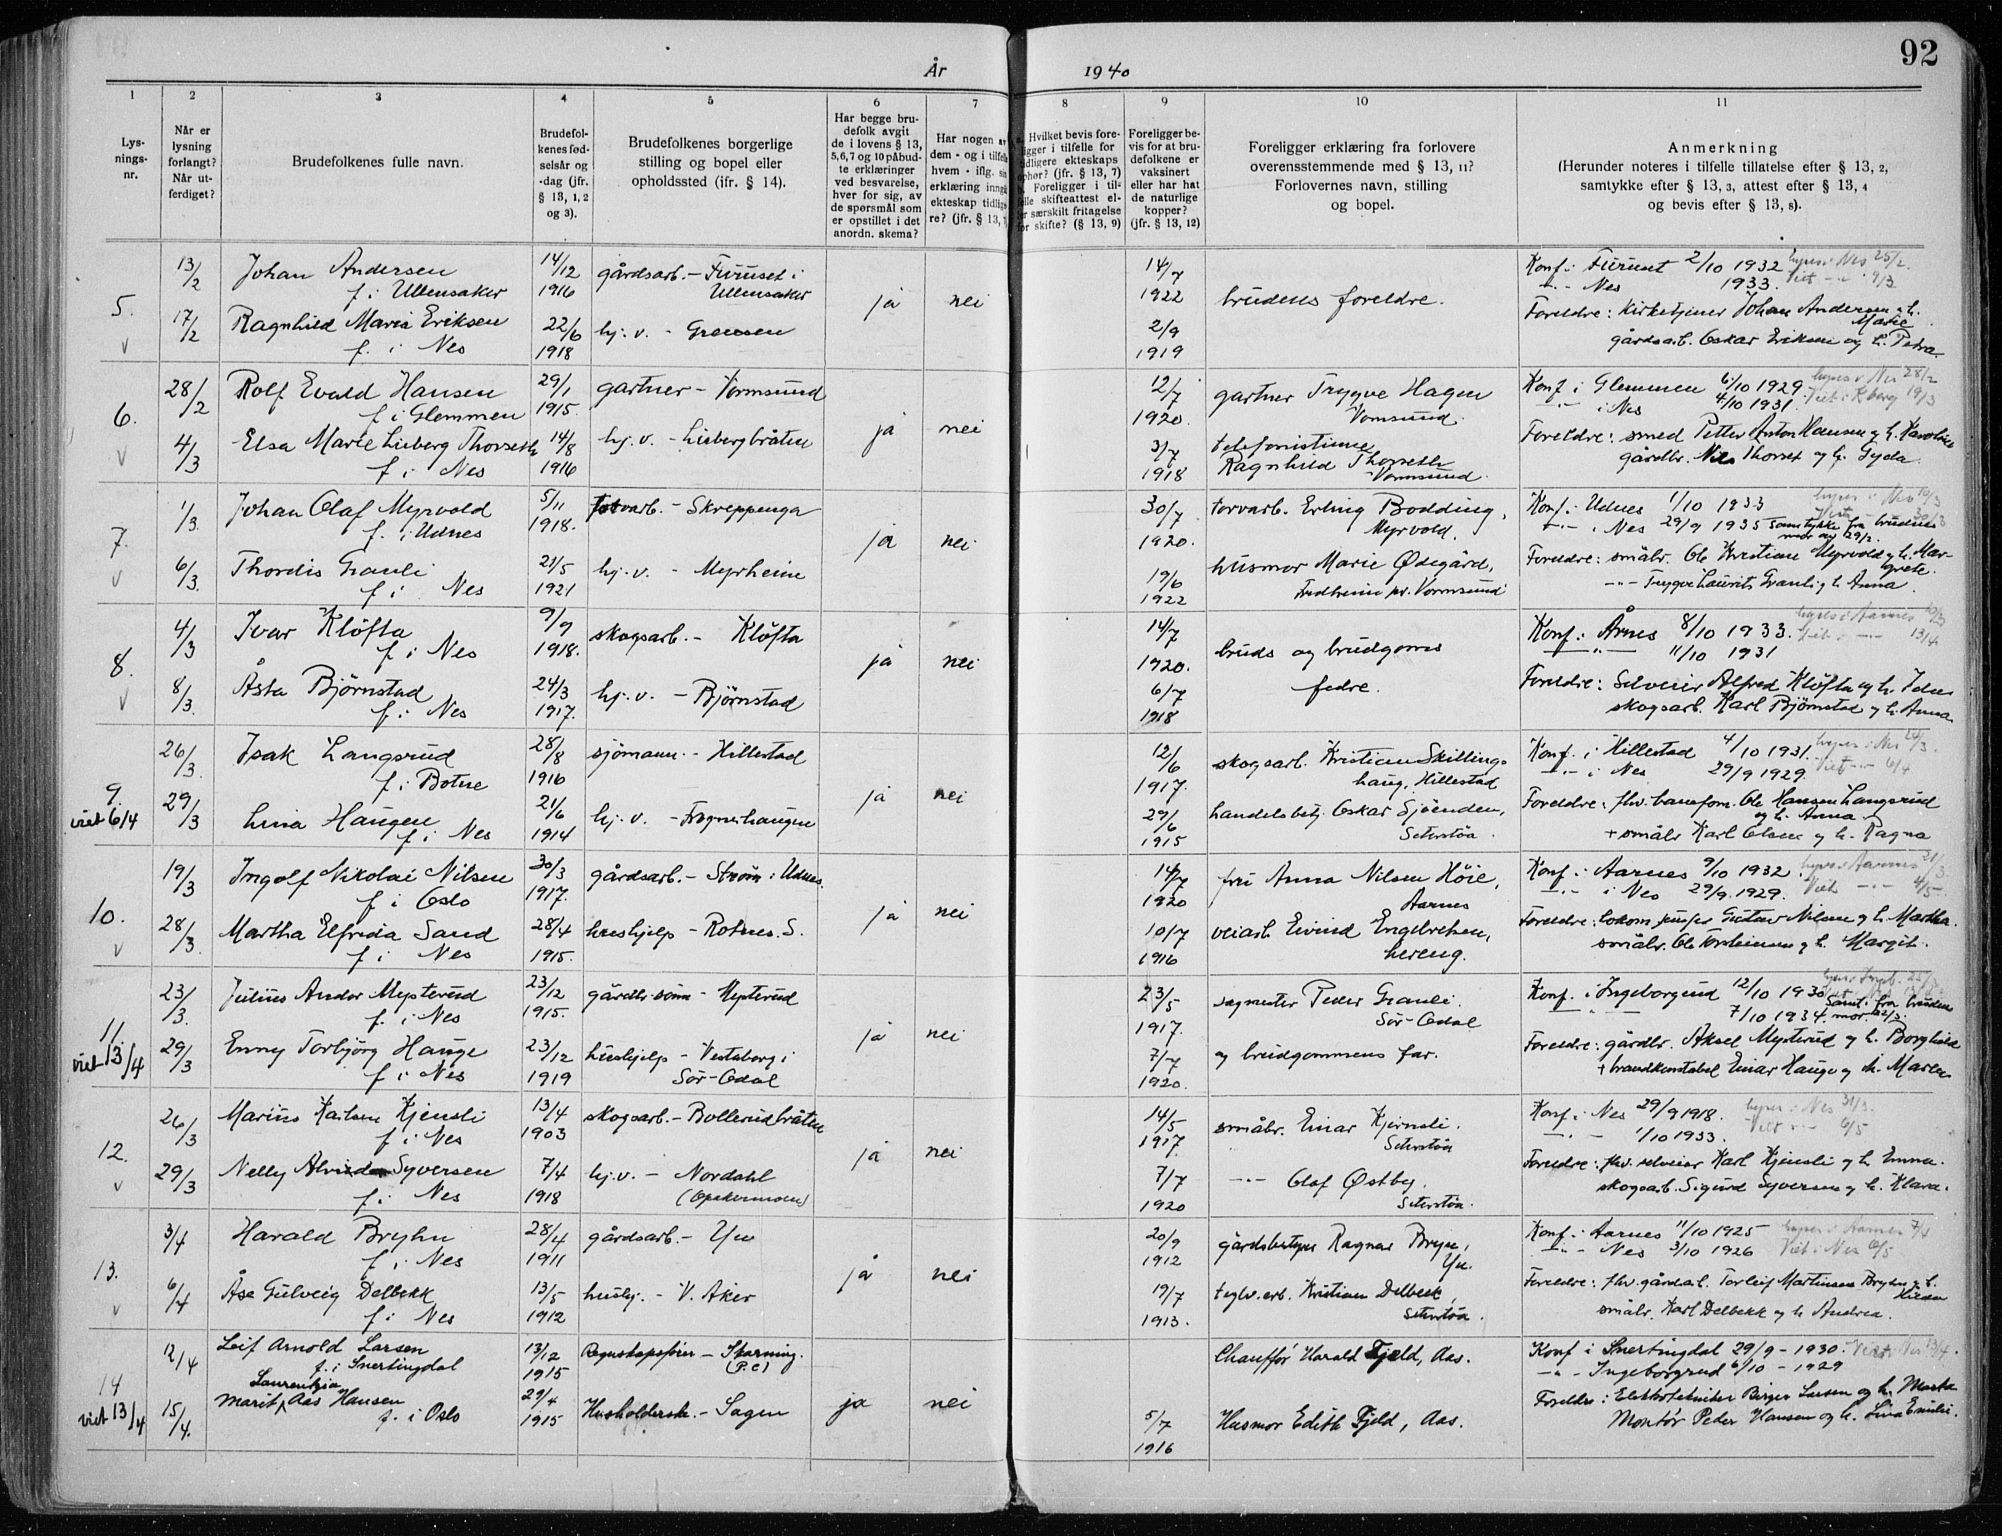 92
År 1940
1 2 3 4 5 6 7 8 9 10 11
Lys-
nings-
nr.
Når er
lysning
forlangt?
Når ut-
ferdiget?
Brudefolkenes fulle navn.
Brudefol-
kenes fød-
selsår og
-dag (jfr.
§ 13, 1, 2
og 3).
Brudefolkenes borgerlige
stilling og bopel eller
opholdssted (ifr. § 14).
Har begge bru-
defolk avgit
de i lovens § 13,
5, 6, 7 og 10 påbud-
te erklæringer
ved besvarelse,
hver for sig, av
de spørsmål som
er opstillet i det
anordn. skema?
Har nogen av
dem - og i tilfelle
hvem - iflg. sin
erklæring inngå
ekteskap tidlige
re? (jfr. § 13,
Hvilket bevis fore-
ligger i tilfelle for
tidligere ekteskaps
ophør? (jfr. § 13, 7)
Foreligger i til-
felle skifteattest el-
ler særskilt fritagelse
for skifte? (§ 13, 9)
Foreligger be-
vis for at bru-
defolkene er
vaksinert
eller har hat
de naturlige
kopper?
(jfr. § 13, 12)
Foreligger erklæring fra forlovere
overensstemmende med § 13, 11?
Forlovernes navn, stilling
og bopel.
Anmerkning
(Herunder noteres i tilfelle tillatelse efter § 13, 2,
samtykke efter § 13, 3, attest efter § 13, 4
og bevis efter § 13, 8).
5.
13/2 Johan Andersen 14/12 gårdsarb. - Furuset i 14/7 Konf. i Furuset 2/10 1932 lyses i Nes 25/2
f. i Ullensaker 1916 Ullensaker ja nei 1922 brudens foreldre. -"- Nes 1933. Viet -"- 9/3
17/2 Ragnhild Maria Eriksen 22/6 hj. v. - Gremsen 2/9 Foreldre: Kirketjener Johan Andersen og h. Marie
f. i Nes 1918 1919 gårdsarb. Oskar Eriksen og h. Petra.
6.
28/2 Rolf Evald Hansen 29/1 gartner - Vormsund 12/7 gartner Trygve Hagen Konf. i Glemmen 6/10 1929. lyses i Nes 28/2
f. i Glemmen 1915. ja nei 1920. Vormsund. -"- i Nes 4/10 1931. Viet i 19/3
4/3 Elsa Marie Lieberg Thorseth 14/8 hj. v. - Liebergbråten 3/7 telefonistinne Foreldre: smed Petter Anton Hansen og h. Karoline
f. i Nes 1916 1918 Ragnhild Thorseth Vormsund. gårdbr. Nils Thorset og h. Gyda.
7.
1/3. Johan Olaf Myrvold 5/11 torvarb. - Skreppenga 30/7 torvarb. Erling Bodding, Konf. i Udnes 1/10 1933 lyses i Nes 10/3
f. i Udnes 1918. ja nei 1920. Myrvold. -"- i Nes 29/9 1935 samtykke fra brudens mor av 29/2.
6/3. Thordis Granli 21/5 hj. v. - Myrheim 19/6 husmor Marie Ødegård, Foreldre: småbr. Ole Kristian Myrvold og h. Margrete.
f. i Nes 1921 1922 Fredheim pr. Vormsund -"- Trygve Laurits Granli og h. Anna.
8.
4/3 Ivar Kløfta 9/9 skogsarb. - Kløfta 14/7 Konf. i Årnes 8/10 1933. lyses i Aarnes
f. i Nes 1918. ja nei 1920. bruds og brudgoms -"- 11/10 1931 Viet -"- 13/4
8/3. Åsta Bjørnstad 24/3 hj. v. - Bjørnstad 6/7 fedre. Foreldre: Selveier Alfred Kløfta og h. Iden
f. i Nes 1917. 1918 skogsarb. Karl Bjørnstad og h. Anna
9.
viet 6/4
26/3. Isak Langsrud 28/8 sjømann. - Hillestad 12/6 skogsarb. Kristian Skillings- Konf. i Hillestad 4/10 1931. lyses i Nes 24/3.
f. i Botne 1916 ja nei 1917. haug, Hillestad -"- i Nes 29/9 1929. Viet -"- 6/4
29/3 Lina Haugen 21/6 hj. v. - Fragnerhaugen 29/6 handelsbetj. Oskar Sjøenden, Foreldre: fhv. baneform. Ole Hansen Langsrud og h. Anna
f. i Nes 1914 1915 Seterstøa. + småbr. Karl Olsen og h. Ragna
10.
19/3 Ingolf Nikolai Nilsen 30/3 gårdsarb. - Strøm i Udnes. 14/7 fru Anna Nilsen Høie, Konf. i Aarnes 9/10 1932. lyses i Aarnes 21/3
f. i Oslo 1917. ja nei 1920 Aarnes -"- i Nes 29/9. 1929. Viet -"- 4/5.
28/3. Martha Elfrida Sand 28/4 hushjelp - Rotnes. S. 10/7 veiarb. Eivind Engebretsen, Foreldre: Lokom. Gustav Nilsen og h. Martha.
f. i Nes 1915. 1916 Hereng. småbr. Ole Torsteinsen og h. Margit.
11.
viet 13/4
23/3. Julius Andor Mysterud 23/12 gårdbr. sønn - Mysterud 23/5 sagmester Peder Granli. Konf. i Ingeborgrud 12/10 1930.
f. i Nes 1915. ja nei 1917. Sør-Odal -"- 7/10 1934. Samt. fra brudens mor 22/3.
29/3 Enny Torbjørg Hauge 23/12 hushjelp - Vestaberg i 7/7 og brudgommens far. Foreldre: gårdbr. Aksel Mysterud og h. Borghild
f. i Nes 1919 Sør-Odal 1920. + brandkonstabel Einar Hauge og h. Maren
12.
26/3 Marius Karlsen Kjensli 13/4 skogsarb. - Bollerudbråten 14/5 småbr. Einar Kjernsli. Konf. i Nes 29/9 1918. lyses i Nes 31/3.
f. i Nes 1903 ja nei 1917. Seterstøa -"- 1/10 1933. Viet -"- 6/5
29/3 Nelly Syversen 7/4 hj. v. - Nordahl 7/7 -"- Olaf Østby, Foreldre: fhv. selveier Karl Kjensli og h. Emma.
f. i Nes 1918 (Opakermoen) 1920 Seterstøa. skogsarb. Sigurd Syversen og h. Klara.
13.
3/4 Harald Bryhn 28/4 gårdsarb. - Yu 20/9 gårdsbestyrer Ragnar Bryn, Konf. i Aarnes 11/10 1925 lyses i Aarnes 7/4
f. i Nes 1911 ja nei 1912 Yu. -"- Nes 3/10 1926 Viet i Nes 6/5
6/4 Åse Gulveig Delbekk 13/5 hushj. - V. Aker 19/7 teglv.arb. Kristian Delbekk, Foreldre: fhv. gårdsarb. Torleif Martinsen Bryhn og h.
f. i Nes 1912 1913. Seterstøa. småbr. Karl Delbekk og h. Andrea.
14
viet 13/4
12/4 Leif Arnold Larsen 13/12 Regnskapsfører - Skarning. Chauffør Harald Fjeld, Aas. Konf i Snertingdal 29/9 - 1930. Viet i Nes 13/4.
f. i Snertingdal 1915 (P.C) -"- Ingeborgrud 6/10 - 1929
15/4. Marit Laurentzia Aas Hansen 29/4 Husholdersk. - Sagen ja nei 5/7 Husmor Edith Fjeld, Aas. Foreldre: Elektrotekniker Birger Larsen og h. Marta
f. i Oslo 1915 1916 Montør Peder Hansen og h. Lina Emilie.